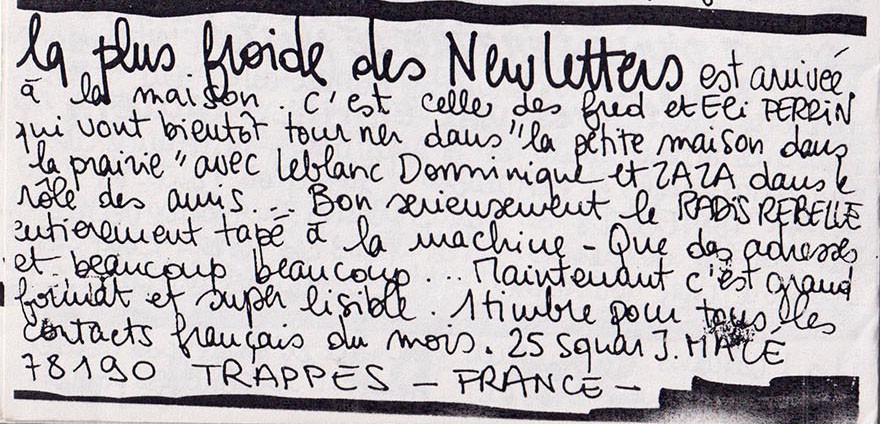 la plus froide des Newletters est arrivée
à la maison. c'est celle des fred et Eli PERRIN
qui vont bientôt tourner dans "la petite maison dans
la prairie" avec Leblanc Dominique et ZAZA dans le
rôle des amis... Bon serieusement le RADIS REBELLE
entierement tapé à la machine - Que des adresses
et beaucoup beaucoup... Maintenant c'est grand
format et super lisible. 1 timbre pour tous les
contacts français du mois. 25 squar J. MACÉ
78190 TRAPPES - FRANCE -